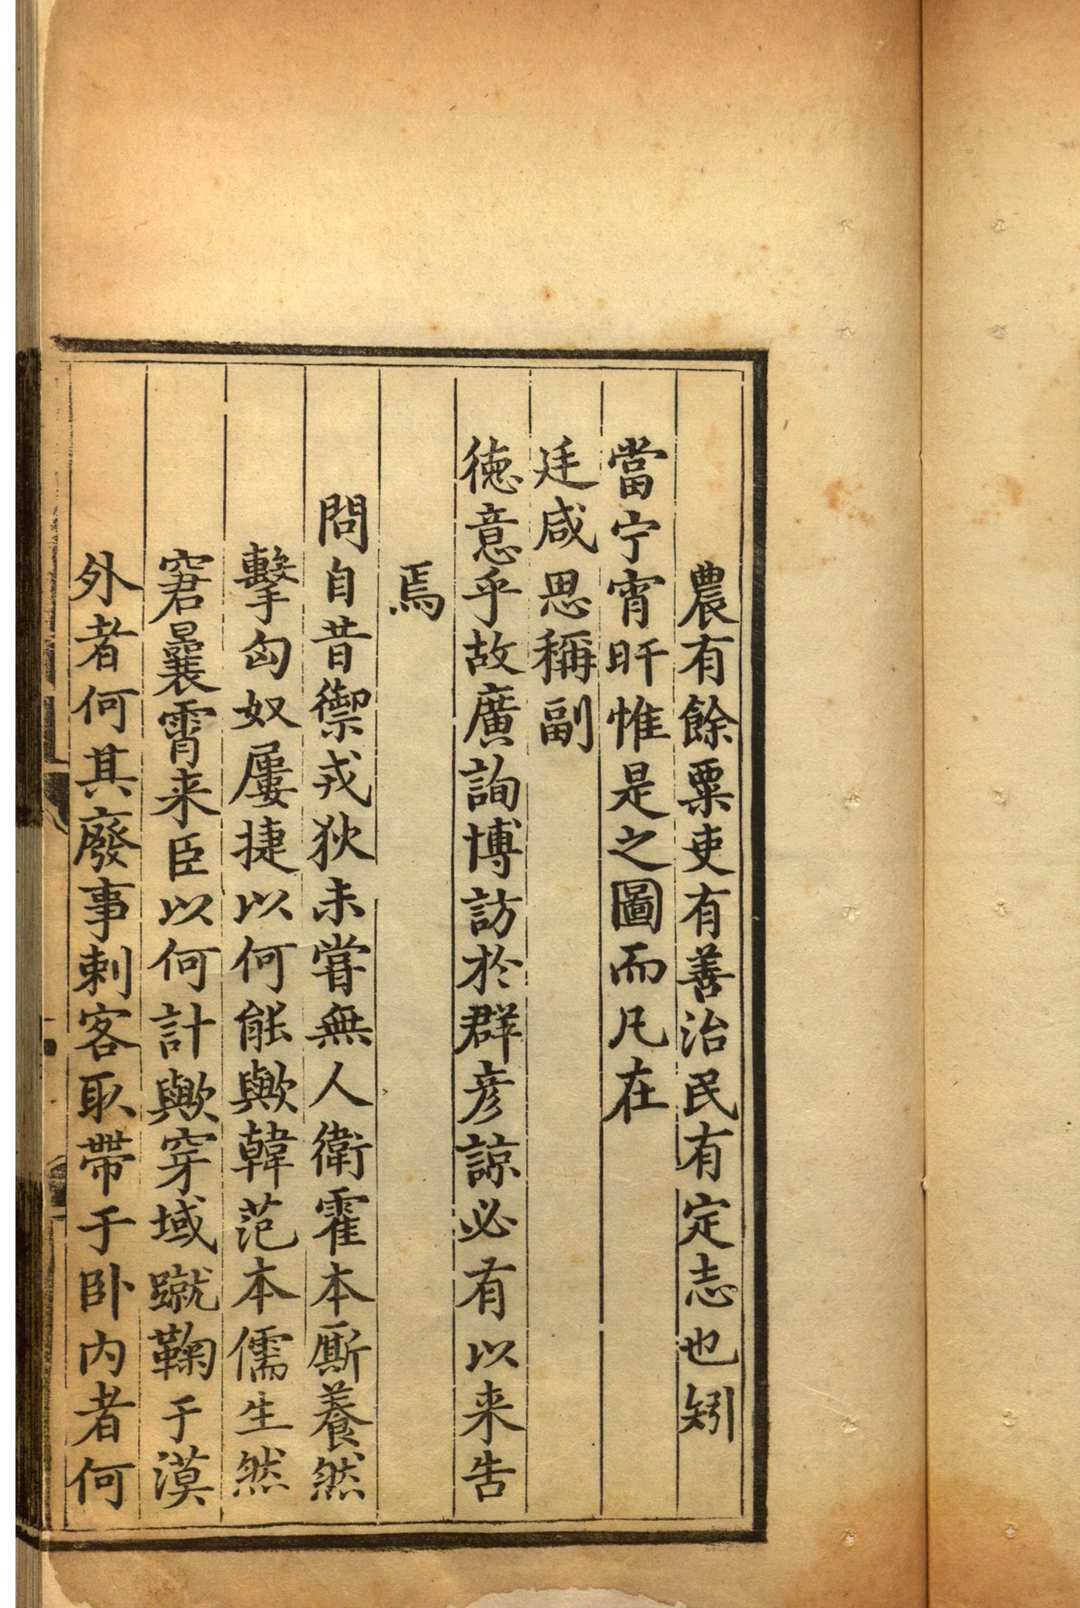 農有餘粟吏有善治民有定志也矧
當宁宵旰惟是之圖而凡在
廷咸思稱副
德意乎故廣詢博訪於群彦諒必有以来告
焉
問自昔禦戎狄未嘗無人衛霍本厮養然
擊匈奴屢捷以何能歟韓范本儒生然
窘曩霄来臣以何計歟穿域蹴鞠于漠
外者何其廢事刺客取帶于卧内者何